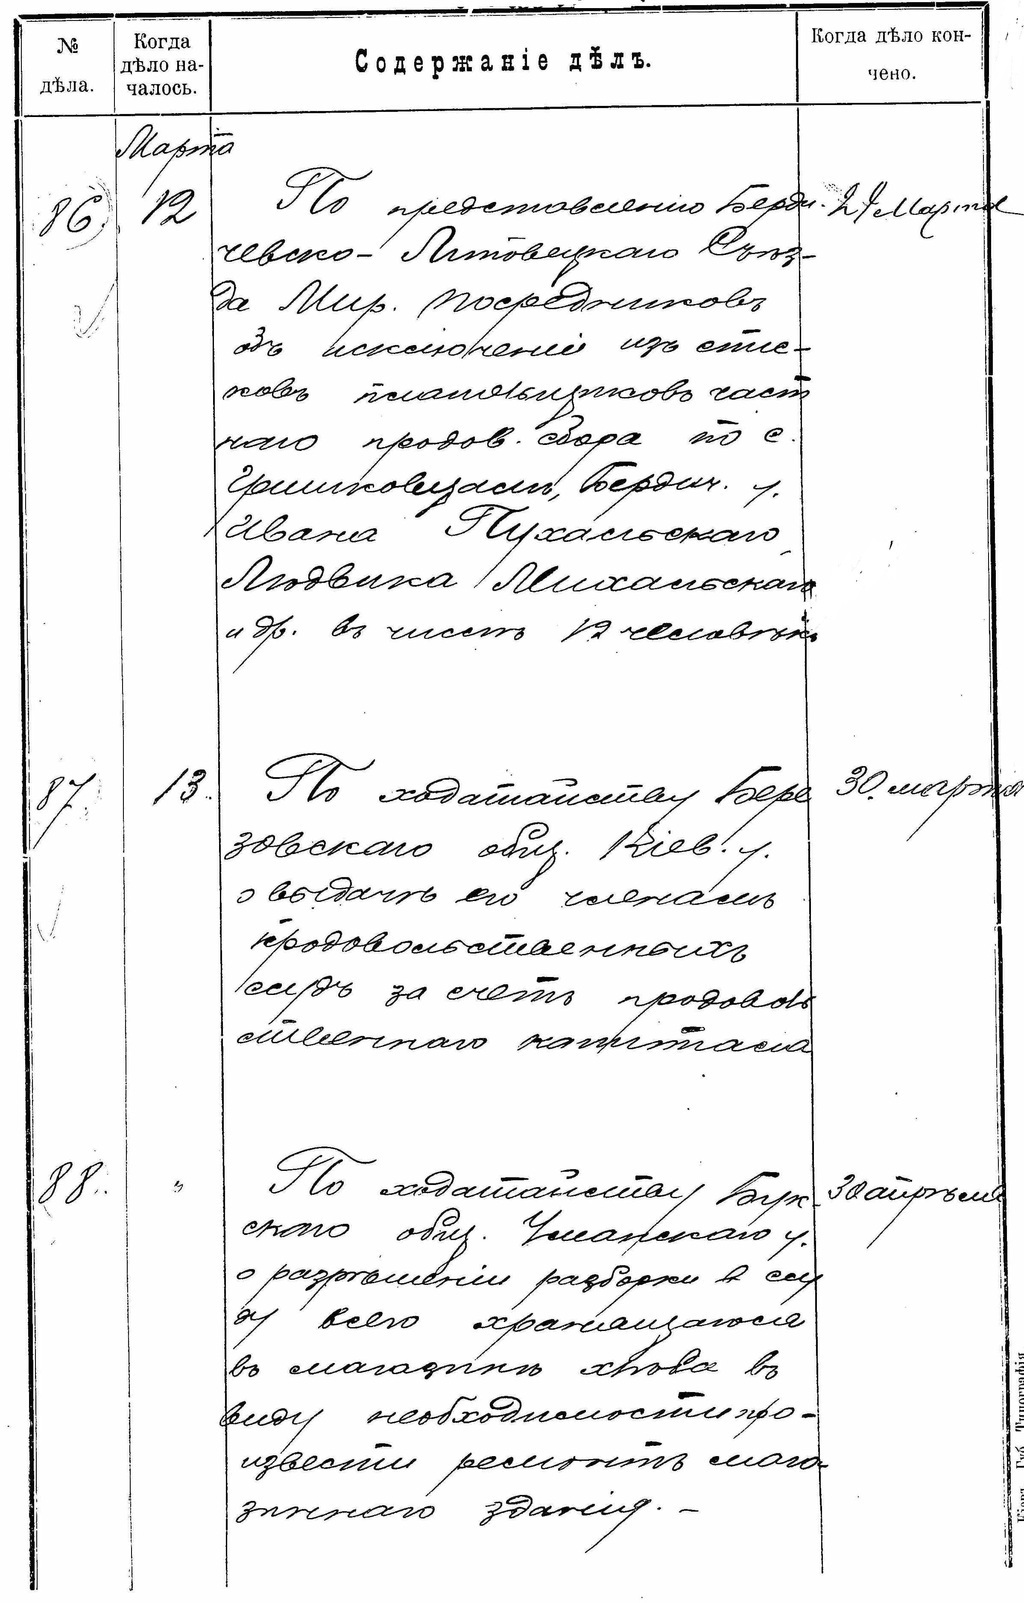 № дѣла.
Когда дѣло началось.
Содержаніе дѣлъ.
Когда дѣло кончено.
Марта
86 12 По представленію Берди- 24 Марта
чевско-Липовецкаго Съѣз-
да Мир. Посредниковъ
объ исключеніи изъ спис-
ковъ плательщиковъ част
наго продов. сбора по с.
Гришковцамъ, Бердич. у.
Ивана Пухальскаго
Людвика Михальскаго
и др. въ числѣ 12 человѣкъ
87. 13. По ходатайству Бере 30. марта
зовскаго общ. Кіев. у.
о выдачѣ его членамъ
продовольственныхъ
ссудъ за счетъ продоволь
ственнаго капитала
88. " По ходатайству Бук- 30 апрѣля
скаго общ. Уманскаго у.
о разрѣшеніи разборки в ссу
ду всего хранящагося
въ магазинѣ хлѣба въ
виду необходимости про-
извести ремонтъ мага-
зиннаго зданія. –
Кіевъ. Губ. Типографія